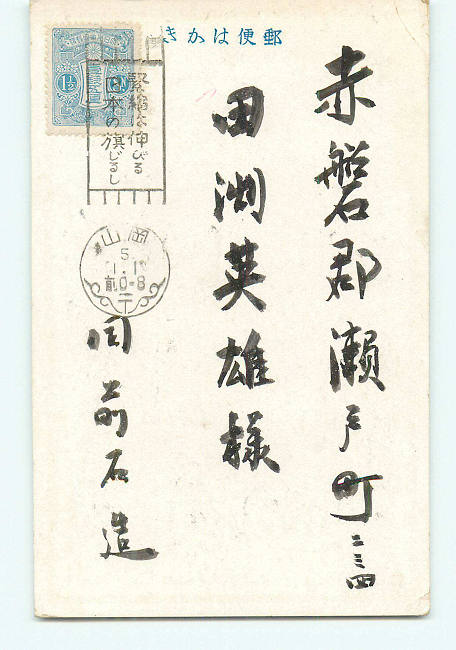 郵便はかき
赤磐郡瀬戸町二三四
田渕英雄様
同前石造
緊縮は伸びる
日本の旗じるし
岡山
5
1.1
前0-8
1½